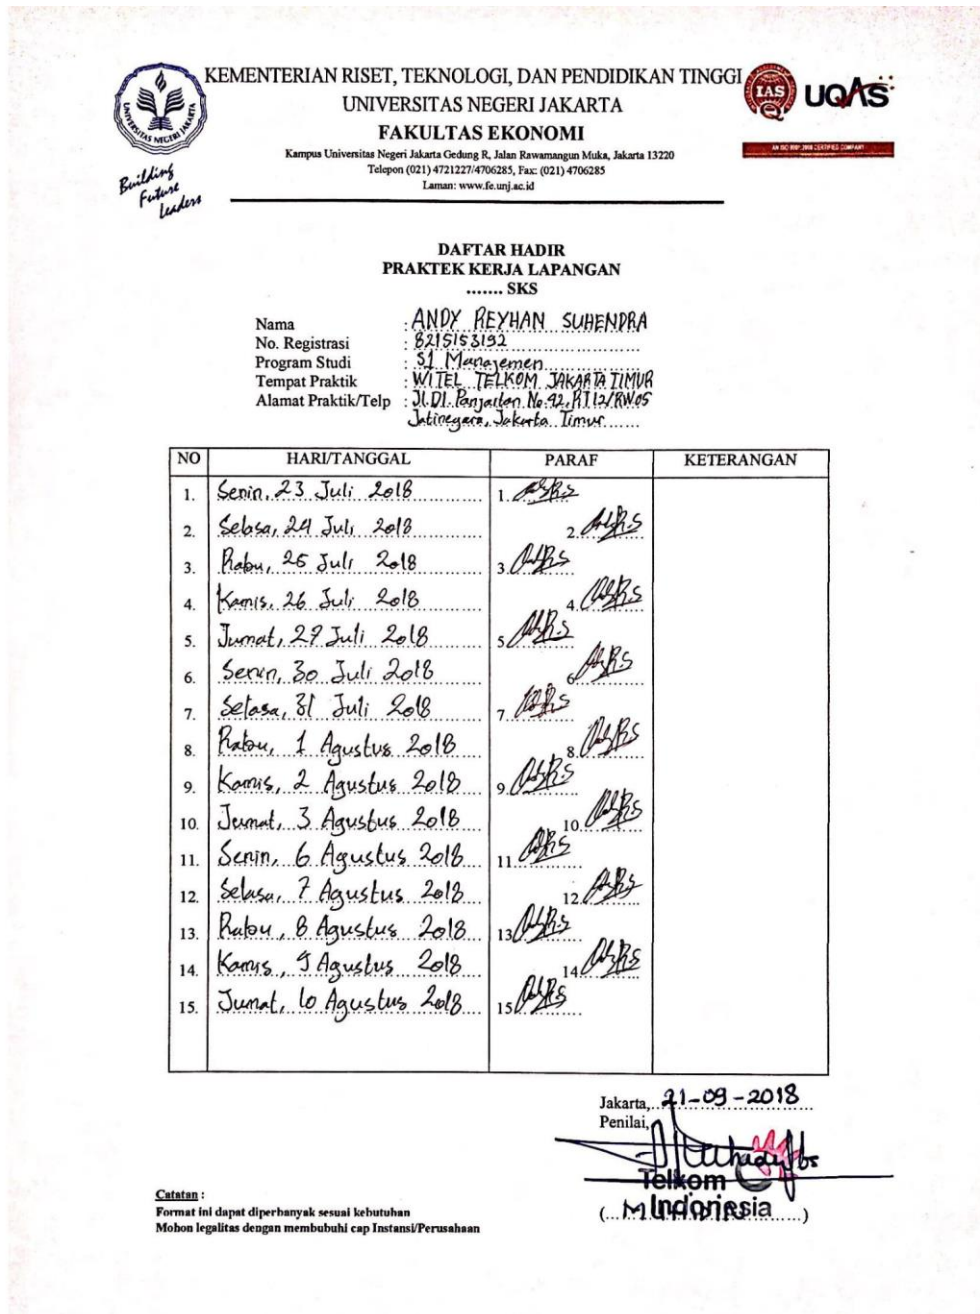 KEMENTERIAN RISET, TEKNOLOGI, DAN PENDIDIKAN TINGGI
UNIVERSITAS NEGERI JAKARTA
FAKULTAS EKONOMI
Kampus Universitas Negeri Jakarta Gedung R, Jalan Rawamangun Muka, Jakarta 13220
Telepon (021) 4721227/4706285, Fax: (021) 4706285
Laman: www.fe.unj.ac.id
UNIVERSITAS NEGERI JAKARTA
Building
Future
Leaders
IAS
UQAS
AN ISO 9001:2008 CERTIFIED COMPANY
DAFTAR HADIR
PRAKTEK KERJA LAPANGAN
....... SKS
Nama : ANDY REYHAN SUHENDRA
No. Registrasi : 8215153192
Program Studi : S1 Manajemen
Tempat Praktik : WITEL TELKOM JAKARTA TIMUR
Alamat Praktik/Telp : Jl. D.I. Panjaitan No.42, RT12/RW05
Jatinegara, Jakarta Timur
NO HARI/TANGGAL PARAF KETERANGAN
1. Senin, 23 Juli 2018 1.
2. Selasa, 24 Juli 2018 2.
3. Rabu, 25 Juli 2018 3.
4. Kamis, 26 Juli 2018 4.
5. Jumat, 27 Juli 2018 5
6. Senin, 30 Juli 2018 6
7. Selasa, 31 Juli 2018 7.
8. Rabu, 1 Agustus 2018 8.
9. Kamis, 2 Agustus 2018 9.
10. Jumat, 3 Agustus 2018 10.
11. Senin, 6 Agustus 2018 11.
12. Selasa, 7 Agustus 2018 12.
13. Rabu, 8 Agustus 2018 13
14. Kamis, 9 Agustus 2018 14
15. Jumat, 10 Agustus 2018 15
Jakarta, 21-09-2018
Penilai,
Telkom
Indonesia
Catatan :
Format ini dapat diperbanyak sesuai kebutuhan
Mohon legalitas dengan membubuhi cap Instansi/Perusahaan